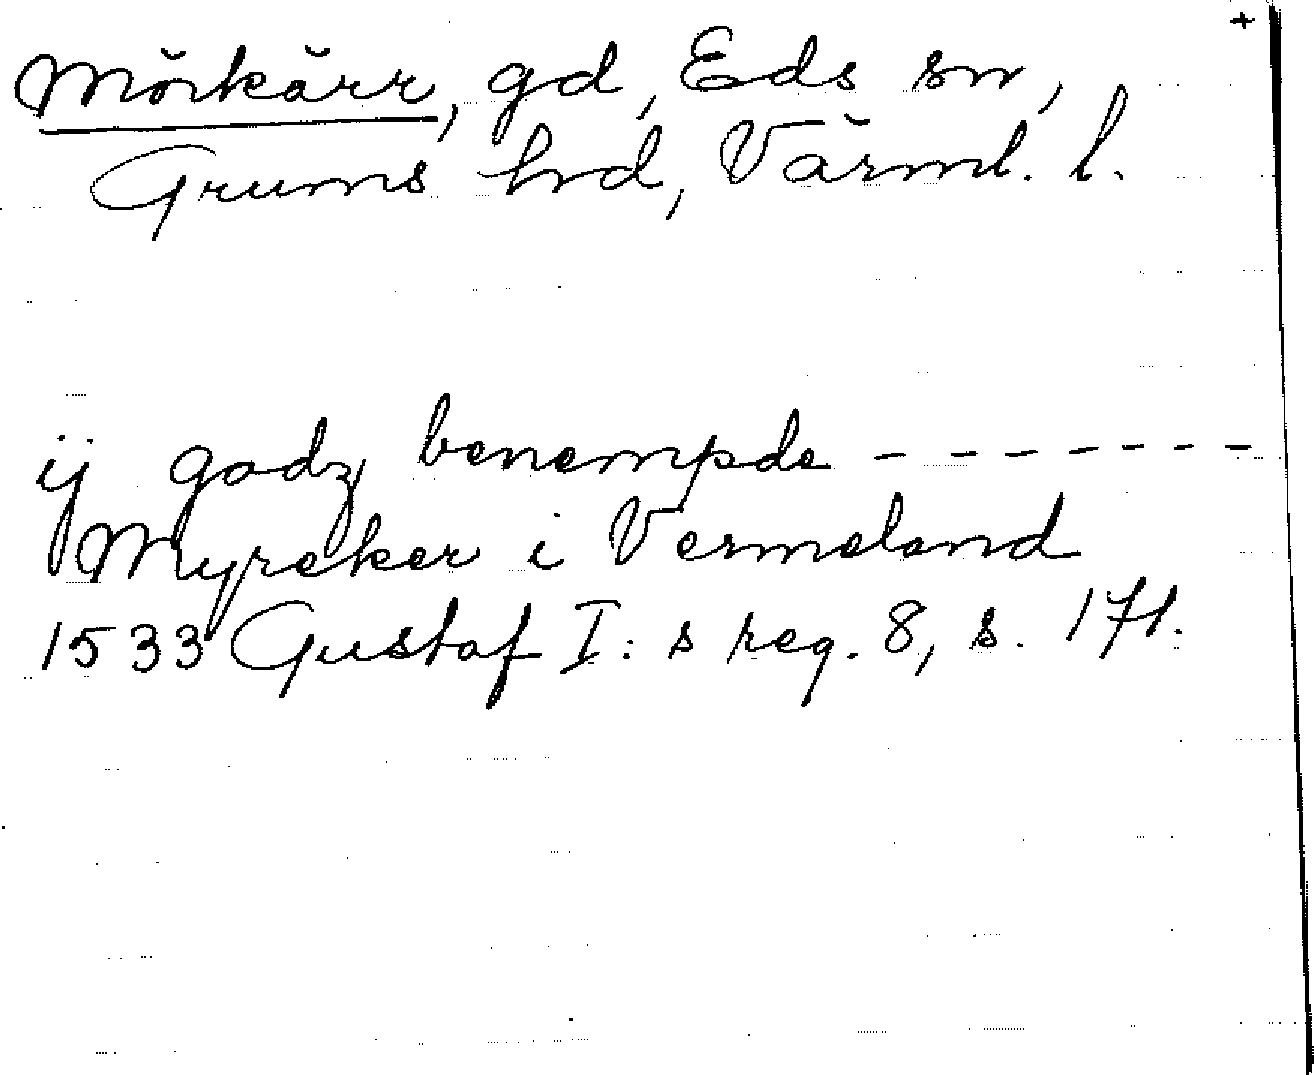 +
Mörkärr, gd, Eds sn,
Grums hrd, Värml. l.
ij godz benempde - - - - - - -
Myreker i Vermeland
1533 Gustaf I: s reg. 8, s. 171.